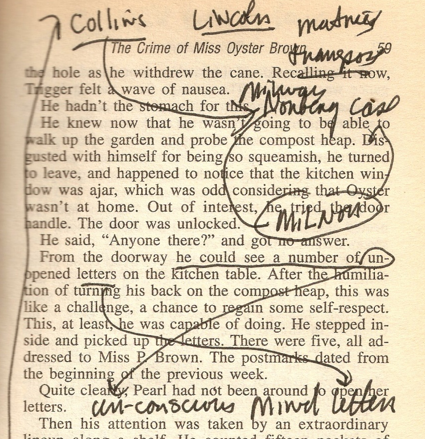 Collins Lincoln
The Crime of Miss Oyster Brown 59
the hole as he withdrew the cane. Recalling it now,
Trigger felt a wave of nausea.
He hadn't the stomach for this.
He knew now that he wasn't going to be able to
walk up the garden and probe the compost heap. Dis-
gusted with himself for being so squeamish, he turned
to leave, and happened to notice that the kitchen win-
dow was ajar, which was odd considering that Oyster
wasn't at home. Out of interest, he tried the door
handle. The door was unlocked.
He said, "Anyone there?" and got no answer.
From the doorway he could see a number of un-
opened letters on the kitchen table. After the humilia-
tion of turning his back on the compost heap, this was
like a challenge, a chance to regain some self-respect.
This, at least, he was capable of doing. He stepped in-
side and picked up the letters. There were five, all ad-
dressed to Miss P. Brown. The postmarks dated from
the beginning of the previous week.
Quite clearly, Pearl had not been around to open her
letters. un-conscious Mind letters
Then his attention was taken by an extraordinary
lineup along a shelf. He counted fifteen